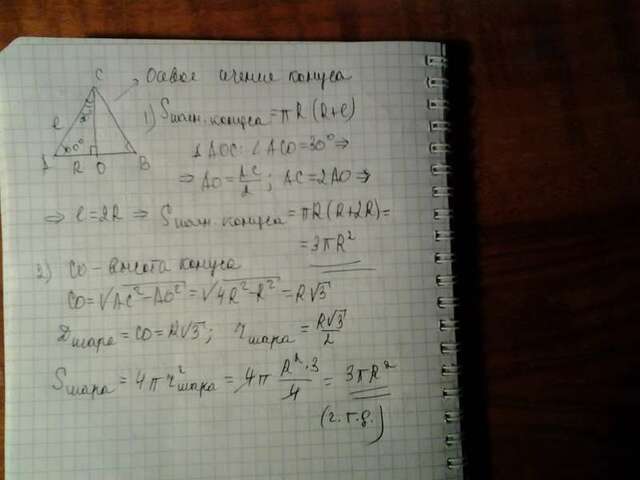 C
Осевое сечение конуса
l
60°
A R O B
1) Sполн. конуса = πR(R+l)
△AOC: ∠ACO=30° ⇒
⇒ AO = AC/2; AC=2AO ⇒
⇒ l=2R ⇒ Sполн. конуса = πR(R+2R)=
=3πR²
2) CO - высота конуса
CO=√AC²-AO² = √4R²-R² = R√3
Dшара = CO = R√3; rшара = R√3/2
Sшара = 4πr²шара = 4π R²·3/4 = 3πR²
(ч.т.д.)